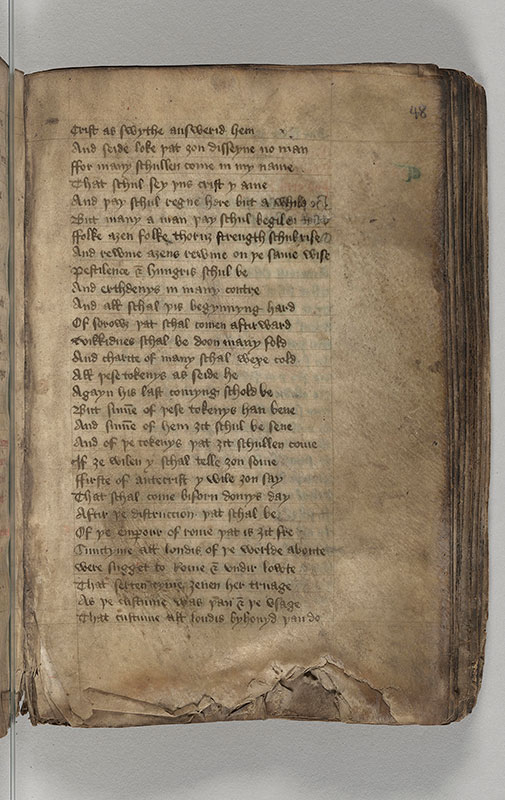 48
Crist as swythe answerid hem
And seide loke þat ȝou disseyue no man
ffor many schullen come in my name
That schul sey þus crist y ame
And þay schul regne here but a while
But many a man þay schul begile
ffolke aȝen folke thoruȝ strength schul rise
And rewme aȝens rewme on þe same wise
Pestilence & hungris schul be
And erthdenys in many contre
And all schal þis begynnyng hard
Of sorow þat schal comen aftirward
Wikkidnes schal be doon many fold
And charite of many schal wexe cold
All þese tokenys as seide he
Agayn his last comyng schold be
But su̅me of þese tokenys han bene
And su̅me of hem ȝit schul be sene
And of þe tokenys þat ȝit schullen come
If ȝe wilen y schal telle ȝou some
ffirste of antecrist y wile ȝou say
That schal come biforn domys day
Aftir þe distruccion þat schal be
Of þe empour of rome þat is ȝit fre
Su̅tyme all londis of þe worlde aboute
were sugget to Rome & vndir lowte
That setten tyme ȝeuen her truage
As þe custume was þan & þe vsage
That custume all londis byhouyd þan do